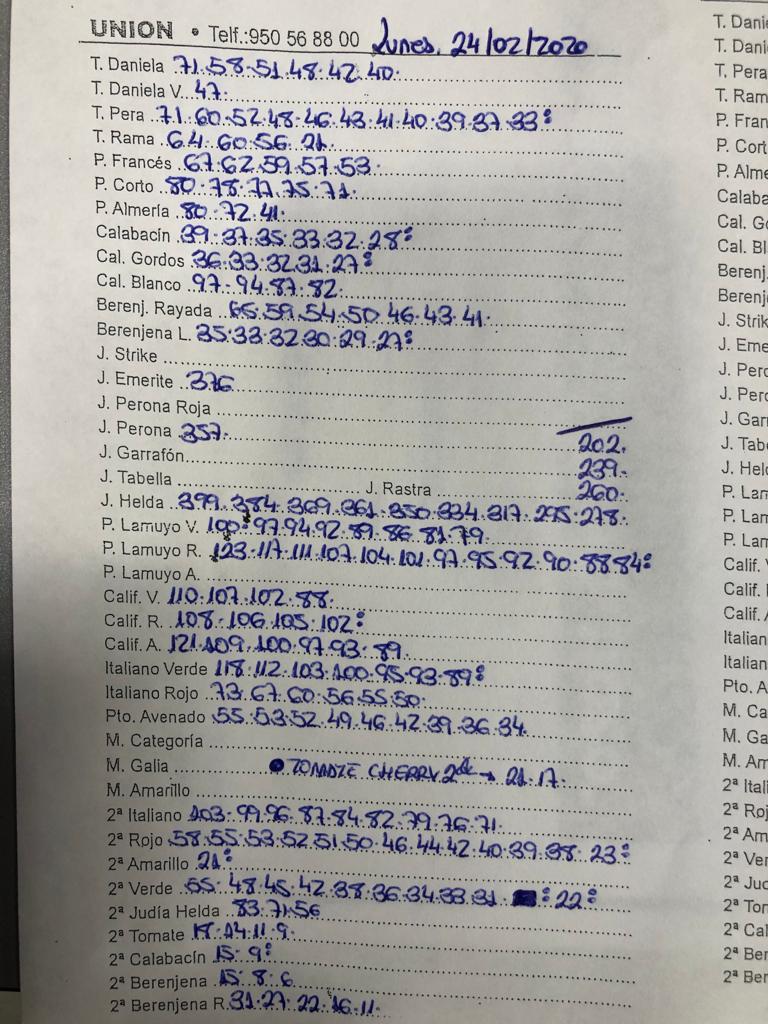 UNION • Telf.:950 56 88 00 Lunes, 24/02/2020
T. Daniela 71.58.51.48.42.40.
T. Daniela V. 47.
T. Pera 71.60.52.48.46.43.41.40.39.37.33:
T. Rama 64.60.56.21.
P. Francés 67.62.59.57.53.
P. Corto 80.78.77.75.71.
P. Almería 80.72.41.
Calabacín 39.37.35.33.32.28:
Cal. Gordos 36.33.32.31.27:
Cal. Blanco 97.94.87.82.
Berenj. Rayada 65.59.54.50.46.43.41.
Berenjena L. 35.33.32.30.29.27:
J. Strike
J. Emerite 376
J. Perona Roja
J. Perona 357. 202.
J. Garrafón 239.
J. Tabella J. Rastra 260.
J. Helda 399.384.369.361.350.334.317.295.278.
P. Lamuyo V. 100:97.94.92.89.86.81.79.
P. Lamuyo R. 123.117.111.107.104.101.97.95.92.90.88.84:
P. Lamuyo A.
Calif. V. 110.107.102.88.
Calif. R. 108.106.105.102:
Calif. A. 121.109.100.97.93.89.
Italiano Verde 118.112.103.100.95.93.89:
Italiano Rojo 73.67.60.56.55.50.
Pto. Avenado 55.53.52.49.46.42.39.36.34.
M. Categoría
M. Galia • TOMATE CHERRY 2de → 21.17.
M. Amarillo
2ª Italiano 103.99.96.87.84.82.79.76.71.
2ª Rojo 58.55.53.52.51.50.46.44.42.40.39.38.23:
2ª Amarillo 21:
2ª Verde 55.48.45.42.38.36.34.33.31 : 22:
2ª Judía Helda 83.71.56
2ª Tomate 14.11.9.
2ª Calabacín 15.9:
2ª Berenjena 15.8.6
2ª Berenjena R. 31.27.22.16.11.
T. Dani
T. Dani
T. Pera
T. Ram
P. Fran
P. Cort
P. Alme
Calaba
Cal. Go
Cal. Bl
Berenj.
Berenje
J. Strik
J. Eme
J. Pero
J. Perc
J. Gar
J. Tab
J. Hel
P. Lan
P. Lam
P. Lam
Calif. V
Calif. I
Calif. A
Italian
Italian
Pto. A
M. Ca
M. Ga
M. Am
2ª Itali
2ª Roj
2ª Am
2ª Ver
2ª Jud
2ª Ton
2ª Cal
2ª Ber
2ª Ber